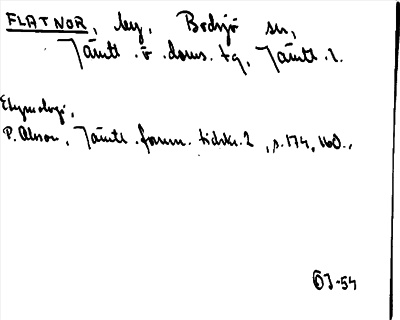 FLATNOR, by, Bodsjö sn,
Jämtl. ö. doms. tg, Jämtl. l.
Etymologi,
P. Olsson, Jämtl. fornm. tidskr. 2, s. 174, 160.,
ÖJ-54